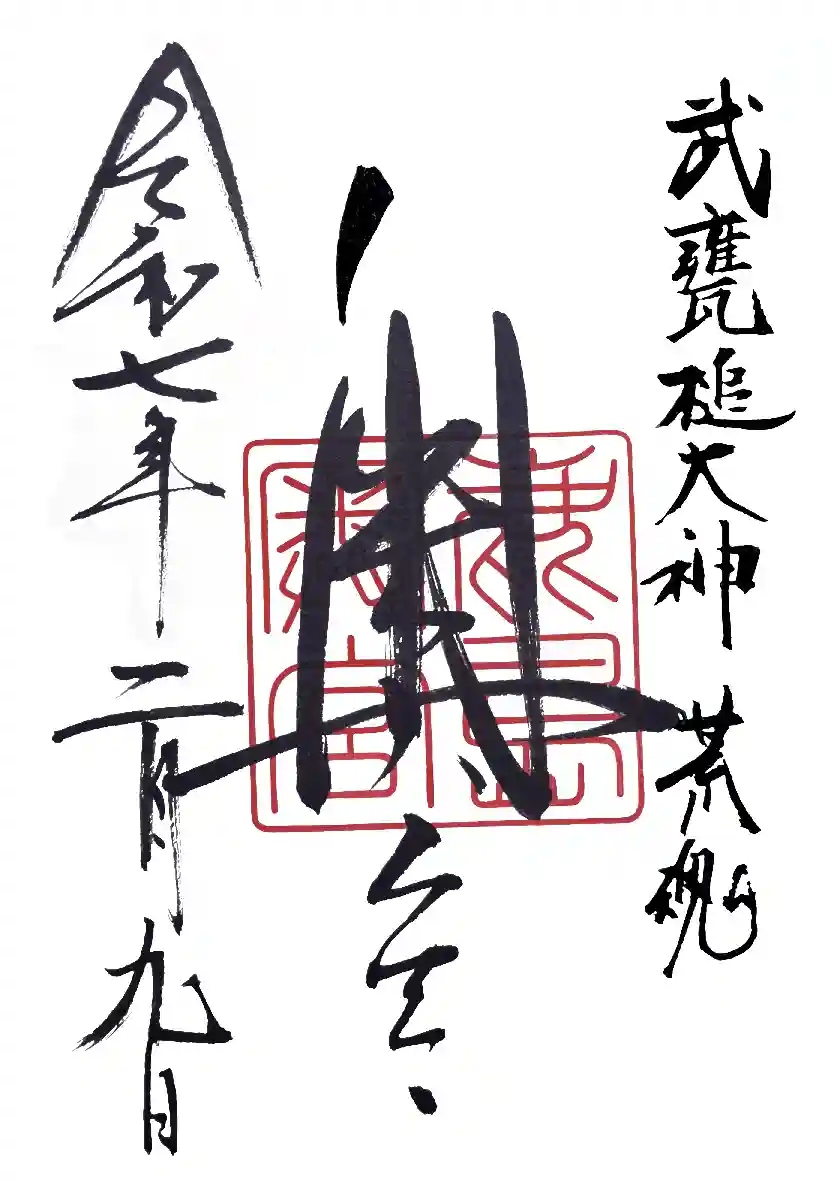 武甕槌大神 荒魂
奥宮
鹿島
奥宮
令和七年二月九日